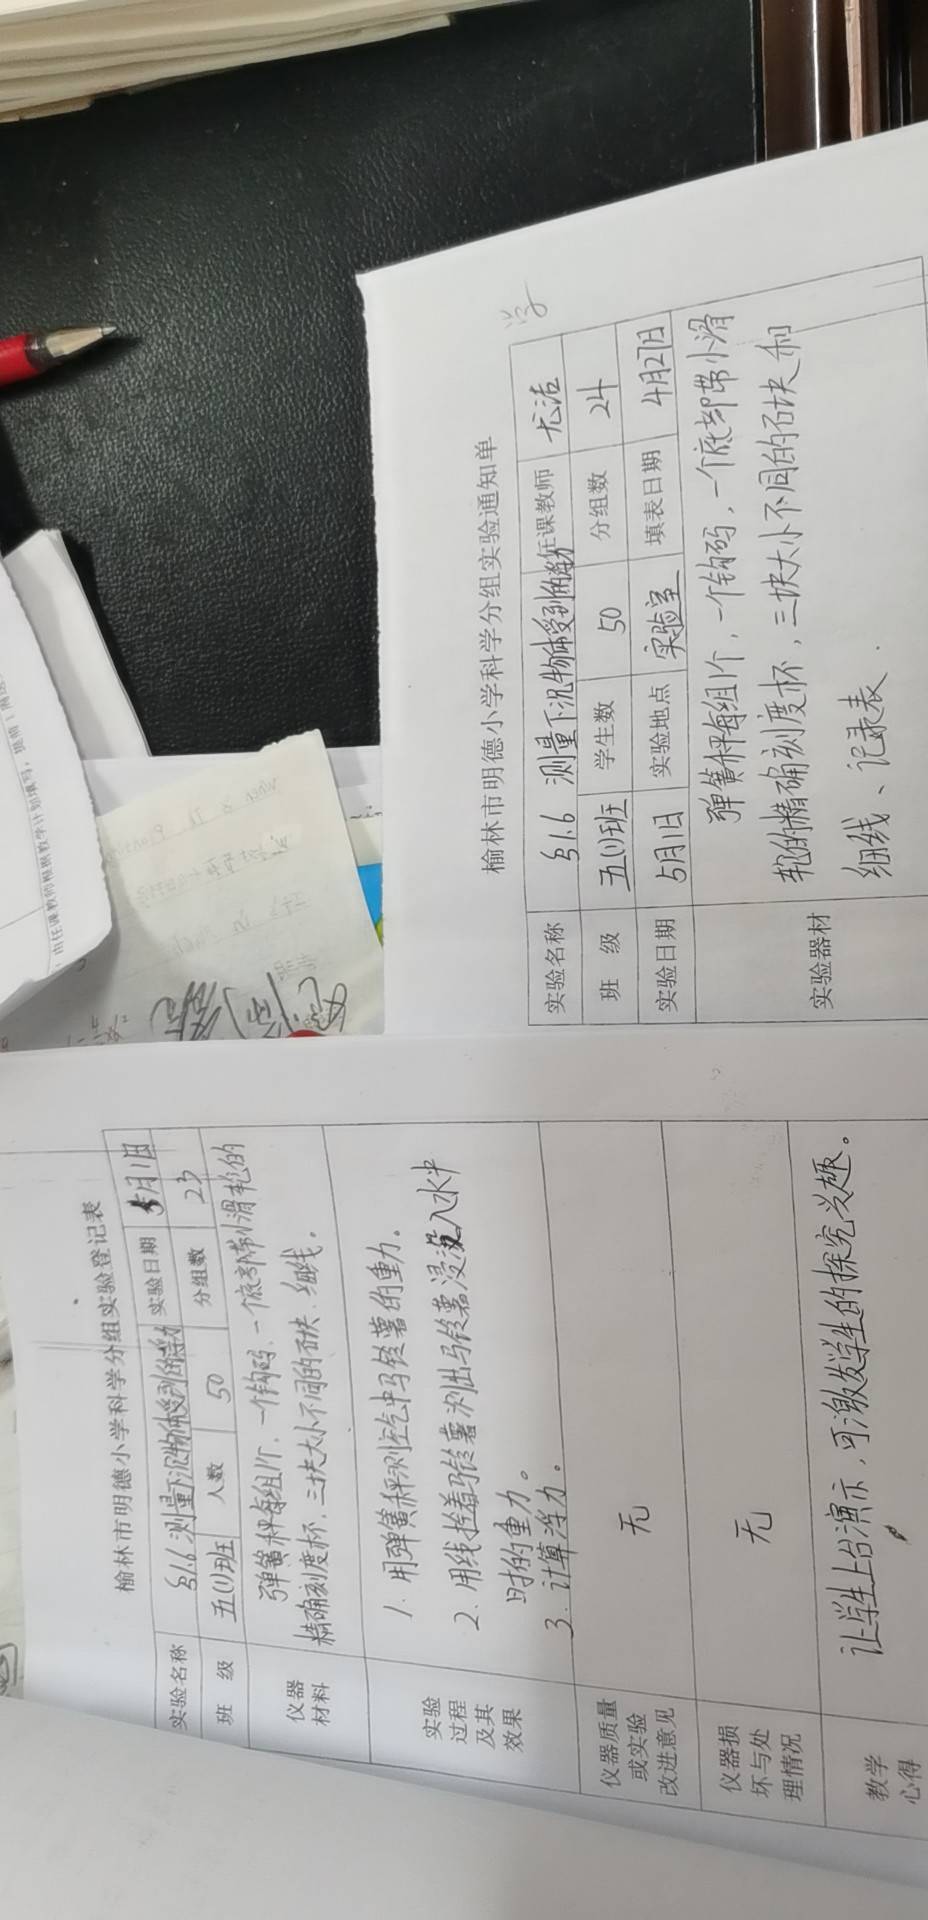 榆林市明德小学科学分组实验登记表
实验名称 §1.6 测量下沉物体受到的浮力 实验日期 5月1日
班 级 五(1)班 人数 50 分组数 23
仪器材料 弹簧秤每组1个、一个钩码、一个底部带小滑轮的
精确刻度杯、三块大小不同的石块、细线。
实验过程及其效果
1. 用弹簧秤测空气中马铃薯的重力。
2. 用线拴着马铃薯测出马铃薯浸没入水中
时的重力。
3. 计算浮力。
仪器质量或实验改进意见 无
仪器损坏与处理情况 无
教学心得 让学生上台演示，可激发学生的探究兴趣。
榆林市明德小学科学分组实验通知单
实验名称 §1.6 测量下沉物体受到的浮力 任课教师 尤洁
班 级 五(1)班 学生数 50 分组数 24
实验日期 5月1日 实验地点 实验室 填表日期 4月21日
实验器材 弹簧秤每组1个，一个钩码，一个底部带小滑
轮的精确刻度杯，三块大小不同的石块和
细线、记录表.